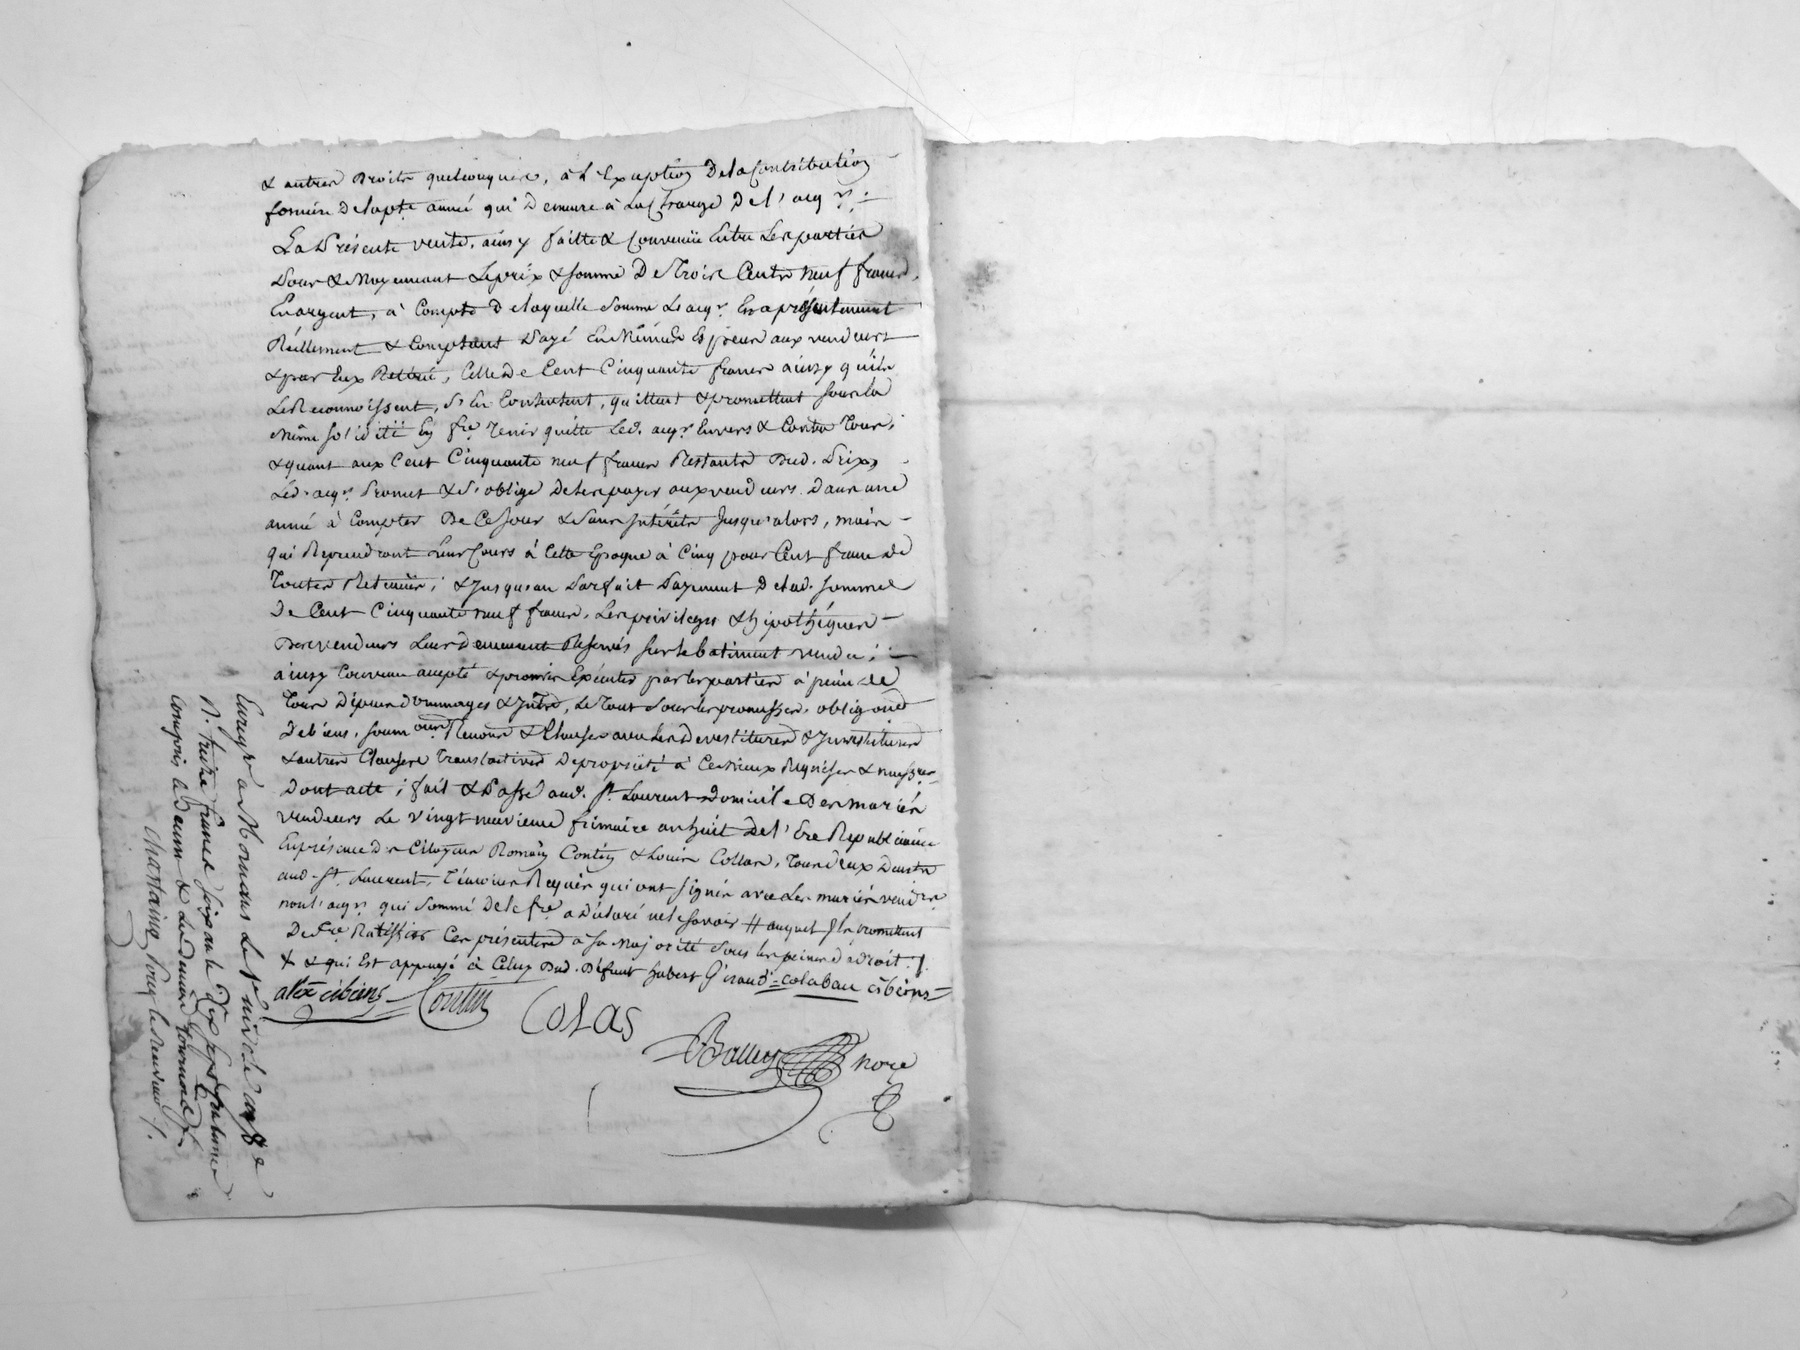 & autres Droits quelconques, à l'Exception de la Contribution
fonciere de la pnte année qui Demeure à La Charge De l'acqr.
La Présente vente, ainsy faitte & Convenüe Entre Les parties
Pour & Moyennant Le prix & somme De Trois Cents neuf francs
En argent, à Compte de laquelle somme L'acqr. En a présentement
Réellement & Comptant Payé En Numéraire Espèces aux vendeurs
& par Eux Retiré, Celle De Cent Cinquante francs ainsy qu'ils
Le Reconnoissent, s'En Contentent, quittent & promettent sous la
même solidité En fre. Tenir quitte Led. acqr. Envers & Contre Tous;
& quant aux Cent Cinquante neuf francs Restants Dud. Prix,
Led. acqr. Promet & s'oblige De les payer aux vendeurs dans une
année à Compter De Ce Jour & sans Intérêts Jusqu'alors, mais
qui Reprendront Leur Cours à Cette Epoque à Cinq pour Cent francs de
Toutes Retenües; & Jusqu'au Parfait Payement De lad. somme
De Cent Cinquante neuf francs, Les privileges & hipothéques
Des vendeurs Leur Demeurent Reservés sur le batiment vendu;
ainsy Convenu accepté & promis Exécuter par les parties à peine de
Tous Dépens Dommages & Intrs, Le Tout sous les promesses, obligons
De biens, soumons, Renons & Clauses avec les Devestitures & Investitures
& autres Clauses Translatives De propriété à Ce Mieux Requises & necesres
Dont acte; fait & Passé aud. St. Laurent Domicile Des mariés
vendeurs Le vingt neuvieme frimaire an huit De l'Ere Republicaine
En présence Des Citoyens Romain Contin & Louis Collas, Tous Deux Dudt
aud. St. Laurent, Témoins Requis qui ont signés avec Les mariés vendrs
non l'acqr. qui sommé De le fre. a Déclaré ne le savoir # auquel Ils promettent
De fre. Ratiffier Ces présentes à sa Majorité sous les peines de droit. /.
X & qui Est appuyé à Celuy Dud. Défunt hubert Giraud = colabau cibeins =
alex cibeins = Contin
Colas
Balley nore
Enregr. à Monans Le 1er. nivose an 8 &
R. treize francs soixante dix sept centimes
compris le Decime &
chastaing Pour le Receveur /.